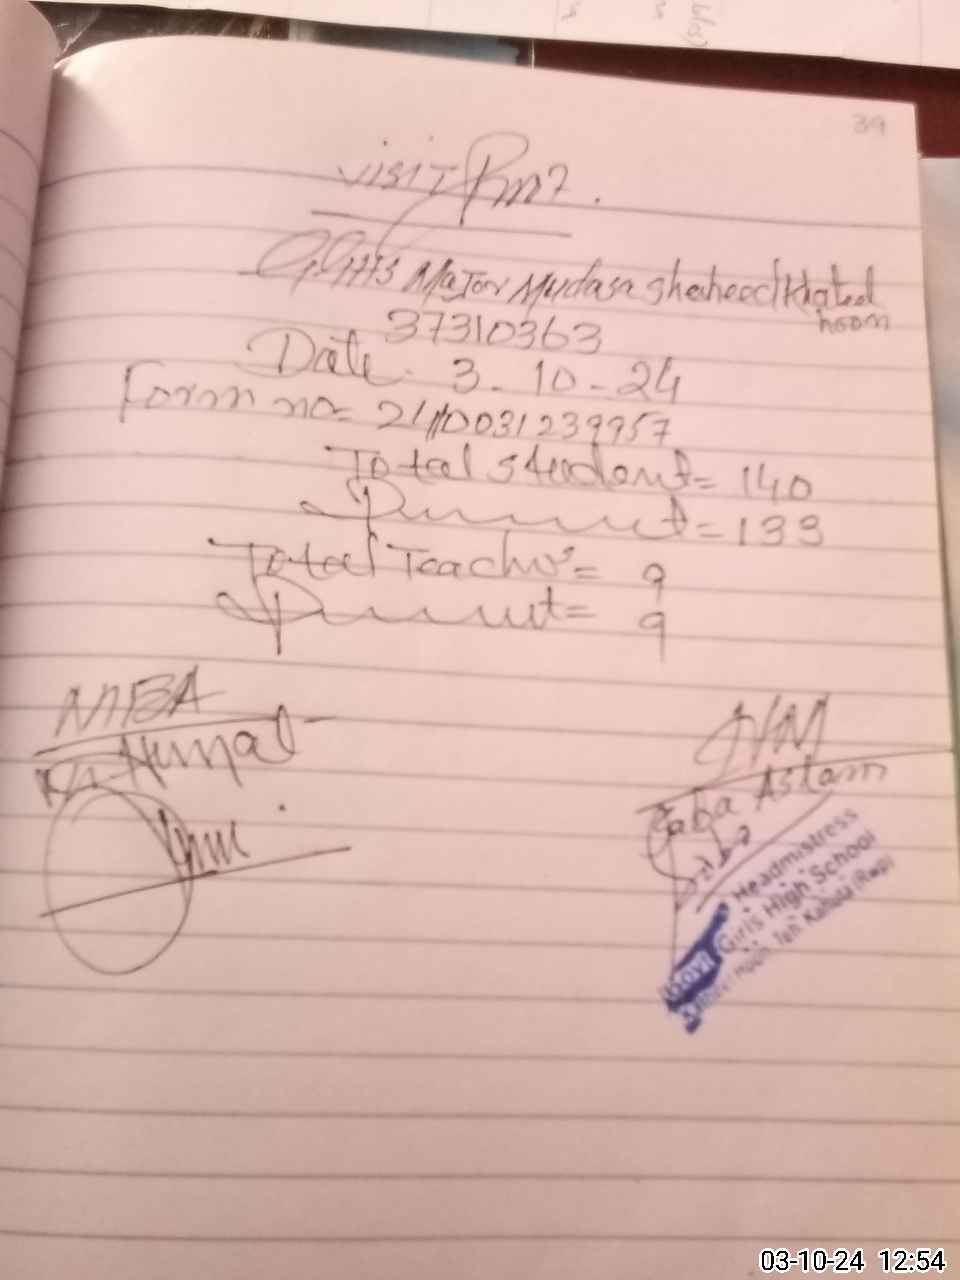 39
Visit
GGHS Major Mudasa Shaheed Khated
hoon
37310363
Date. 3-10-24
Form no= 21110031239957
Total student= 140
Present= 133
Total Teachers= 9
Present= 9
Aslam
Headmistress
Govt Girls High School
hoon Teh Kahuta (Rwp)
03-10-24 12:54